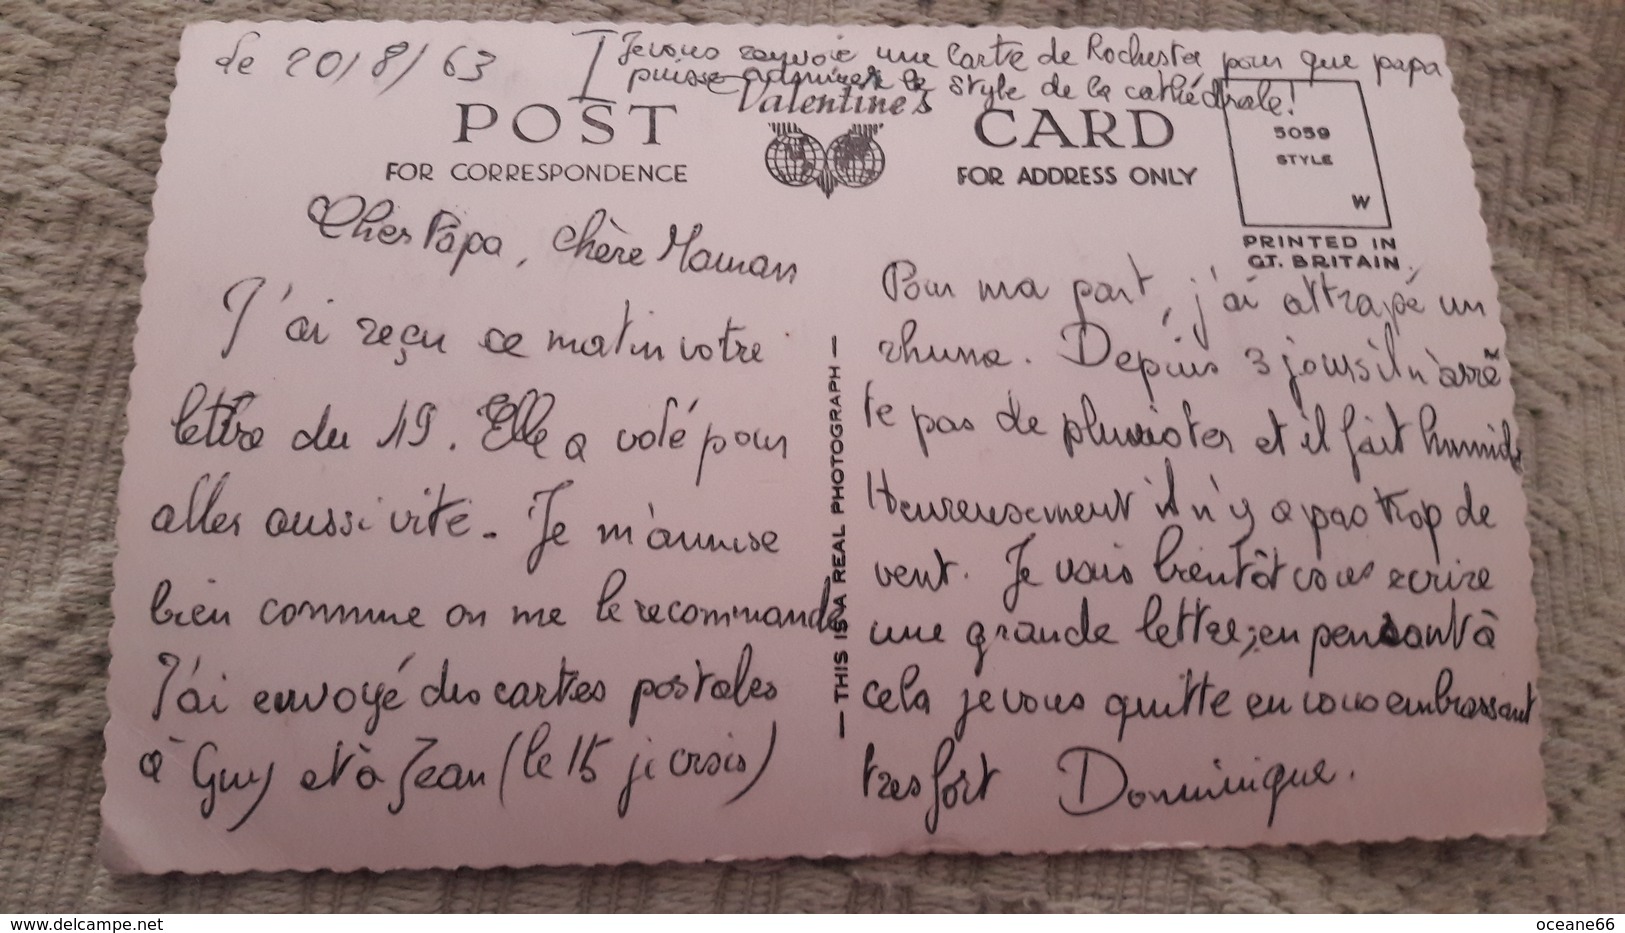 le 20/8/63
Je vous renvoie une carte de Rochester pour que papa
puisse admirer le style de la cathédrale !
Valentine's
POST CARD
FOR CORRESPONDENCE
FOR ADDRESS ONLY
5059
STYLE
W
PRINTED IN
GT. BRITAIN.
Cher Papa, chère Maman
J'ai reçu ce matin votre
lettre du 19. Elle a volé pour
aller aussi vite. Je m'amuse
bien comme on me le recommande
J'ai envoyé des cartes postales
à Guy et à Jean (le 15 je crois)
— THIS IS A REAL PHOTOGRAPH —
Pour ma part, j'ai attrapé un
rhume. Depuis 3 jours il n'arrê
te pas de pluvioter et il fait humide
Heureusement il n'y a pas trop de
vent. Je vais bientôt vous écrire
une grande lettre; en pensant à
cela je vous quitte en vous embrassant
tres fort Dominique.
oceane66